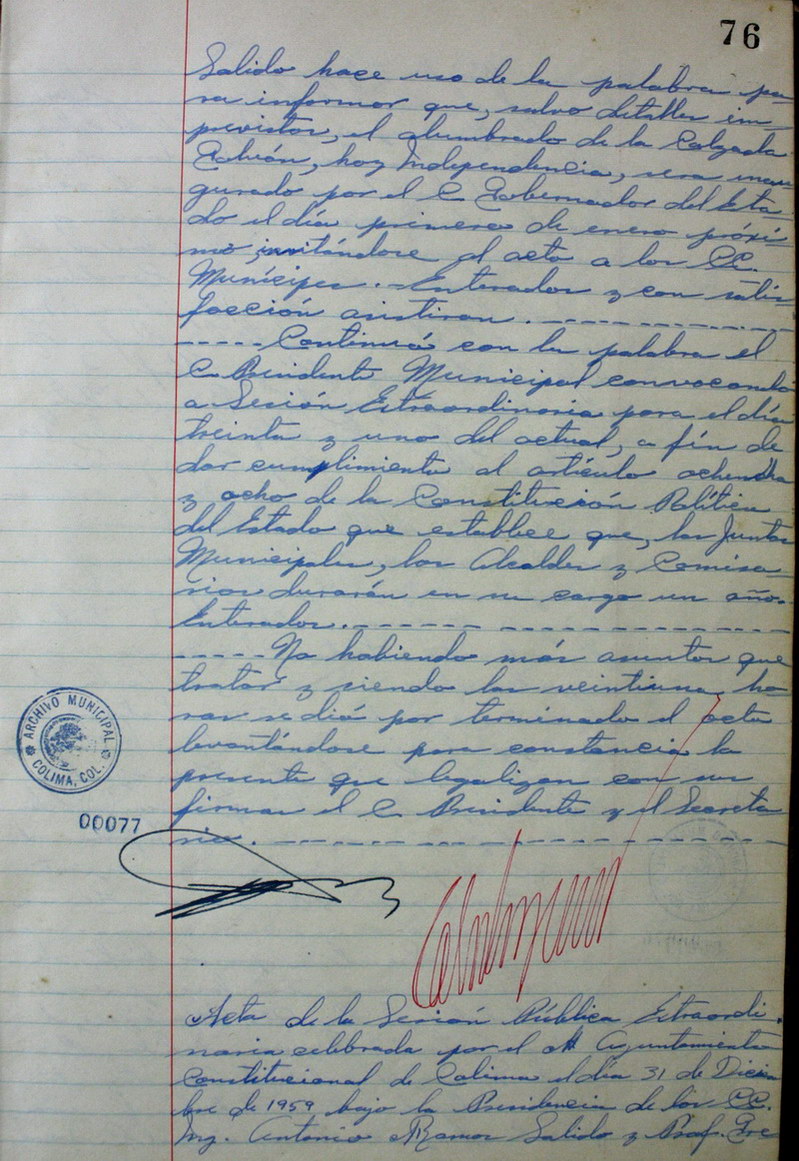 76
Salido hace uso de la palabra pa-
ra informar que, salvo detalles im-
previstos, el alumbrado de la Calzada
Galván, hoy Independencia, sera inau-
gurado por el C. Gobernador del Esta-
do el día primero de enero próxi-
mo, invitándose al acto a los CC.
Munícipes.- Enterados y con satis-
facción asistiran.
Continuó con la palabra el
C. Presidente Municipal convocando
a Sesión Extraordinaria para el día
treinta y uno del actual, a fín de
dar cumplimiento al artículo ochenta
y ocho de la Constitución Política
del Estado que establece que, las Juntas
Municipales, los Alcaldes y Comisa-
rios durarán en su cargo un año.
Enterados.
No habiendo más asuntos que
tratar y siendo las veintiuna, ho-
ras se dió por terminado el acto
levantándose para constancia la
presente que legalizan con sus
firmas el C. Presidente y el Secreta
rio.
ARCHIVO MUNICIPAL
COLIMA, COL.
00077
Acta de la Sesión Pública Extraordi-
naria celebrada por el H. Ayuntamiento
Constitucional de Colima el día 31 de Diciem
bre de 1959 bajo la Presidencia de los CC.
Ing. Antonio Ramos Salido y Prof. Gre